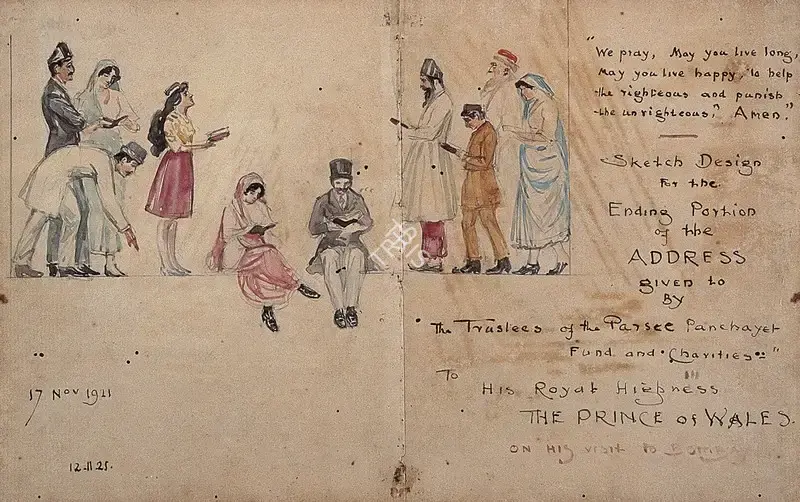 "We pray, May you live long,
May you live happy, to help
the righteous and punish
the unrighteous," Amen."
Sketch Design
For the
Ending Portion
of the
ADDRESS
given to
BY
"The Trustees of the Parsee Panchayet
Fund and Charities"
To
His Royal Highness
THE PRINCE of WALES.
ON HIS VISIT to BOMBAY
17 Nov 1921
12.11.21.